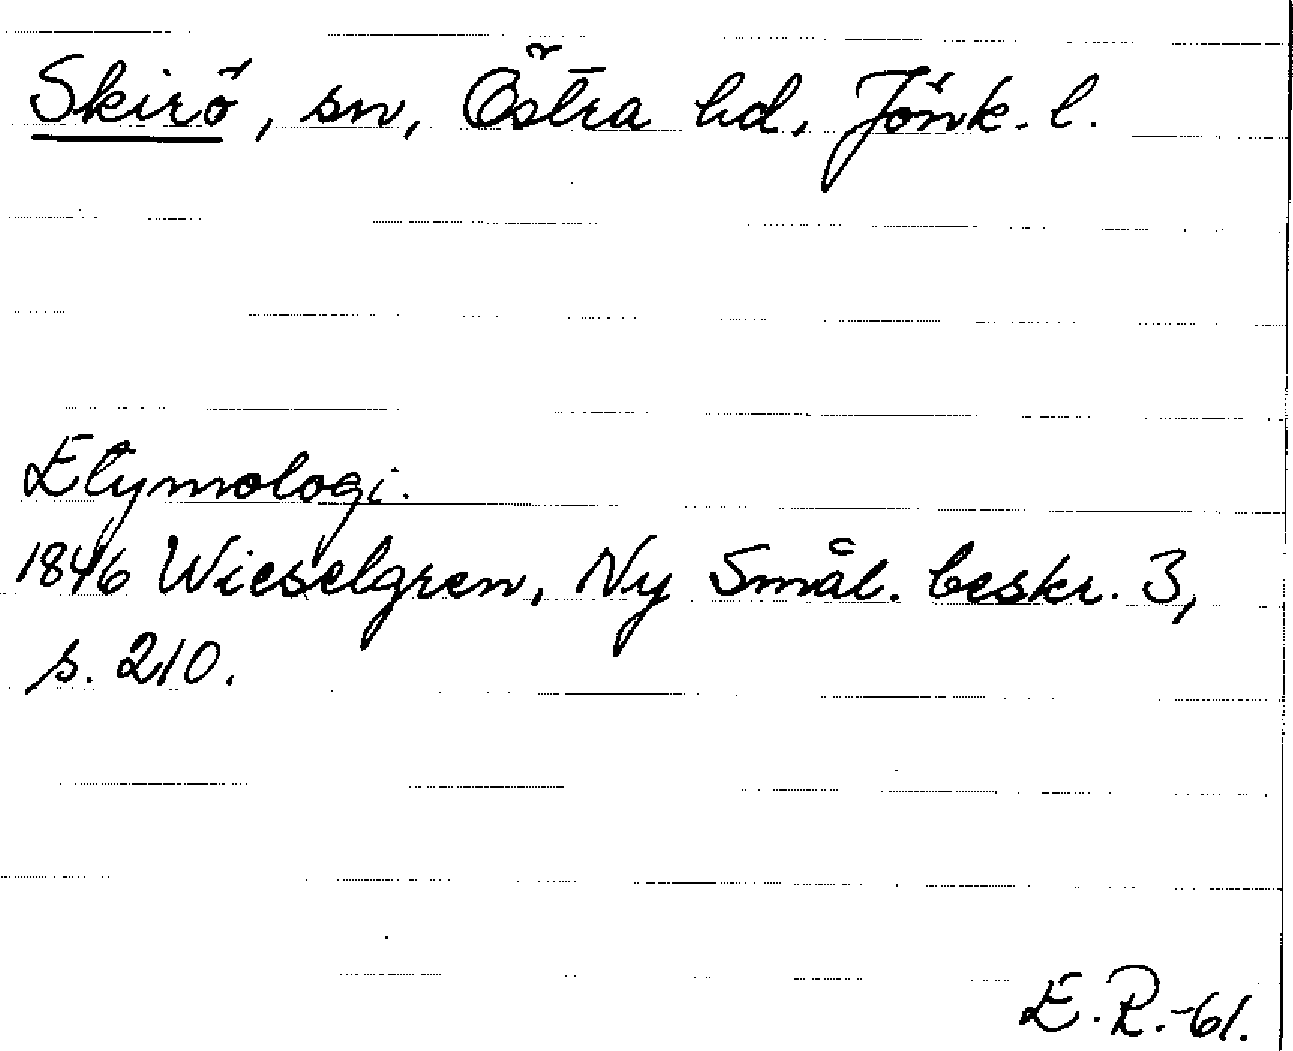 Skirö, sn, Östra hd, Jönk. l.
Etymologi.
1846 Wieselgren, Ny Smål. beskr. 3,
s. 210.
E. R. -61.